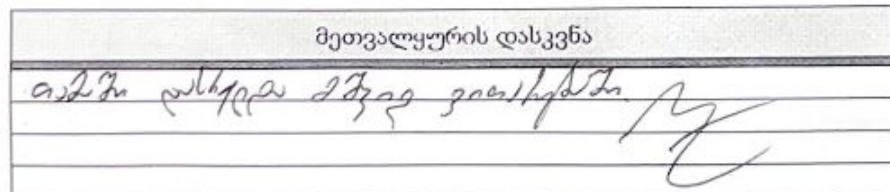 მეთვალყურის დასკვნა
თამაში დასრულდა მშვიდ ვითარებაში.